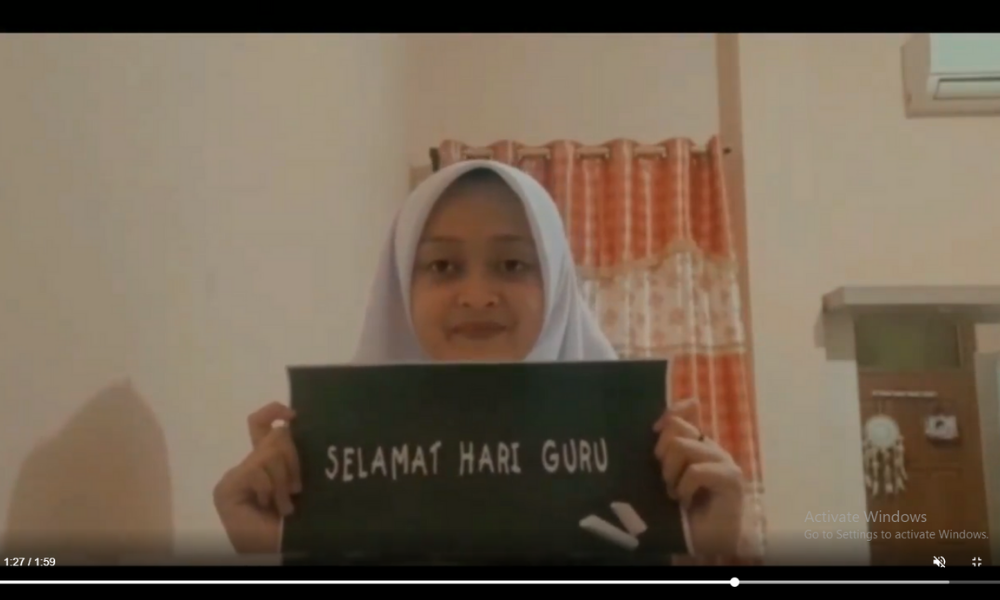 SELAMAT HARI GURU
Activate Windows
Go to Settings to activate Windows.
1:27 / 1:59